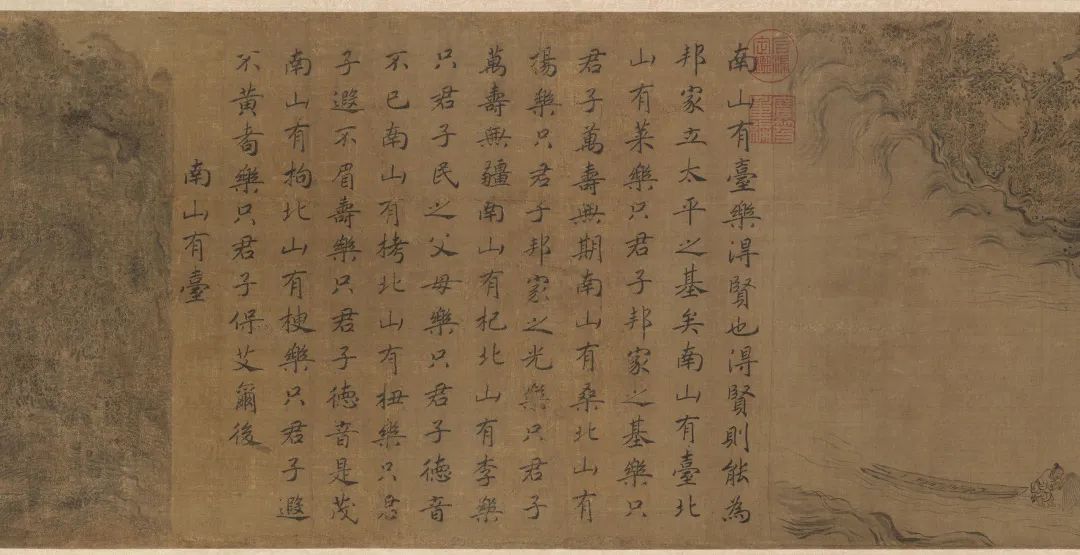 南山有臺樂淂賢也淂賢則能為
邦家立太平之基矣南山有臺北
山有萊樂只君子邦家之基樂只
君子萬壽無期南山有桑北山有
楊樂只君子邦家之光樂只君子
萬壽無疆南山有杞北山有李樂
只君子民之父母樂只君子德音
不已南山有栲北山有杻樂只君
子遐不眉壽樂只君子德音是茂
南山有枸北山有楰樂只君子遐
不黃耇樂只君子保艾爾後
南山有臺